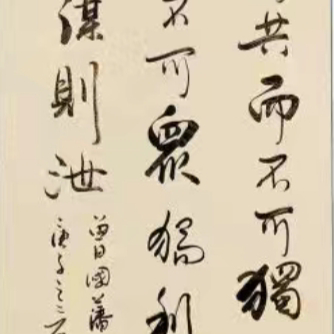 共而不可獨
不可眾獨利
謀則泄
曾國藩
庚子之二